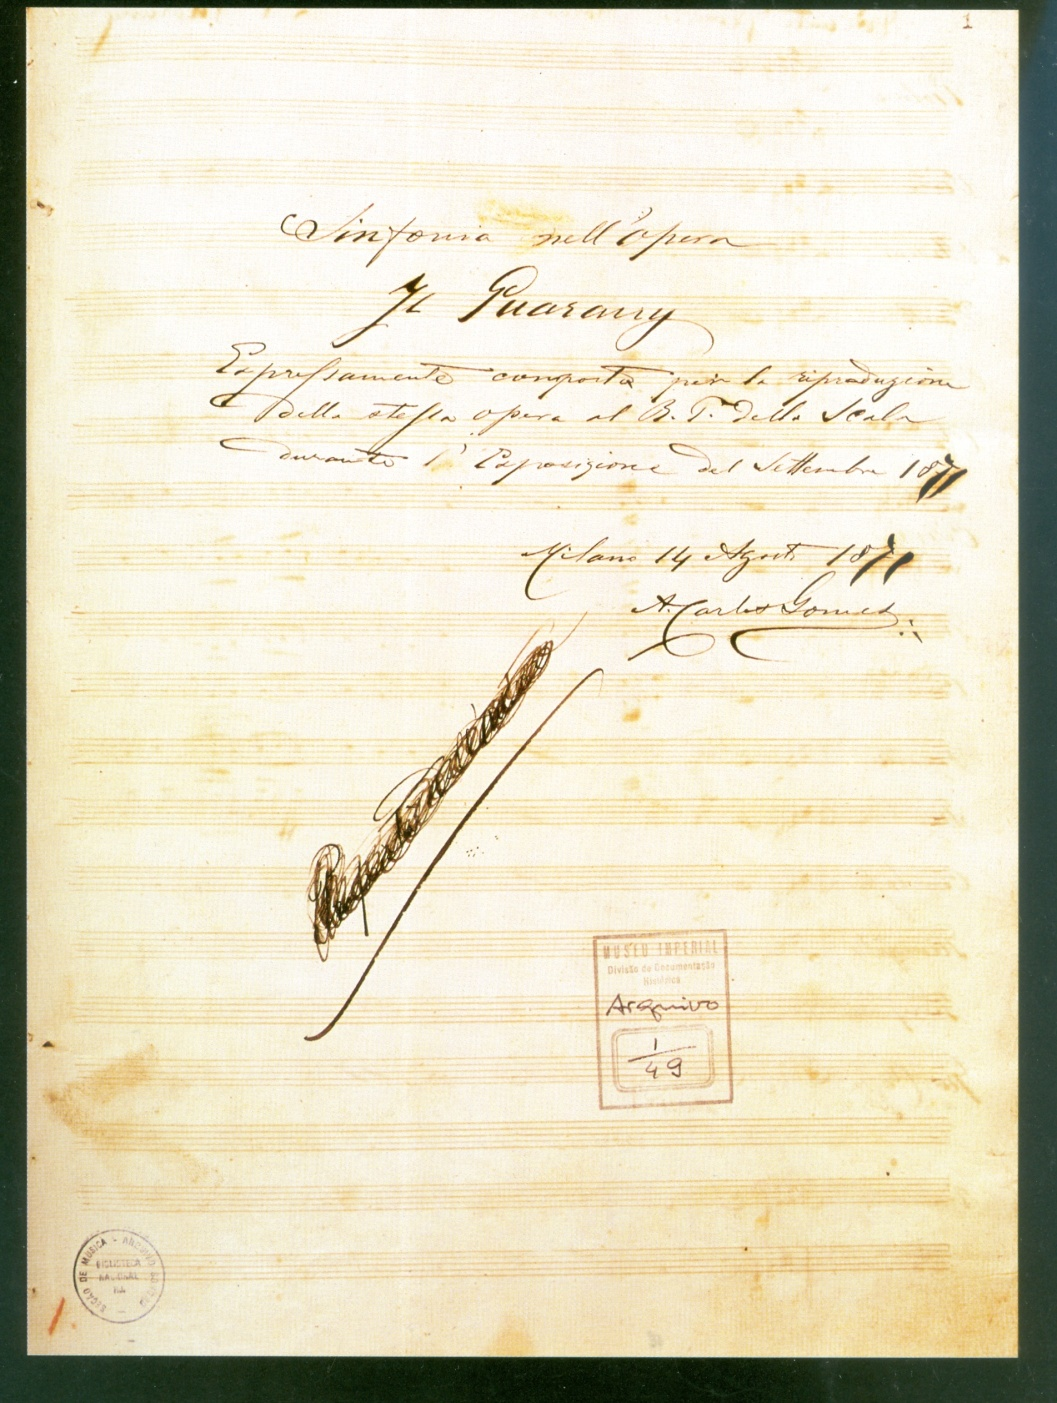 1
Sinfonia nell'opera
Il Guarany
Espressamente composta per la riproduzione
della stessa opera al R. T. della Scala
durante l'Esposizione del Settembre 1871
Milano 14 Agosto 1871
A. Carlos Gomes
MUSEU IMPERIAL
Divisão de Documentação
Histórica
Arquivo
1
49
SEÇÃO DE MUSICA
BIBLIOTECA
NACIONAL